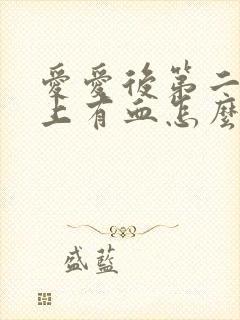 愛愛後第二
上有血怎麼
盛藍